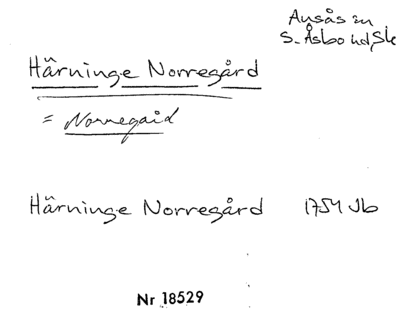 Ausås sn
S. Åsbo hd, Sk
Härninge Norregård
= Norregård
Härninge Norregård 1754 Jb
Nr 18529